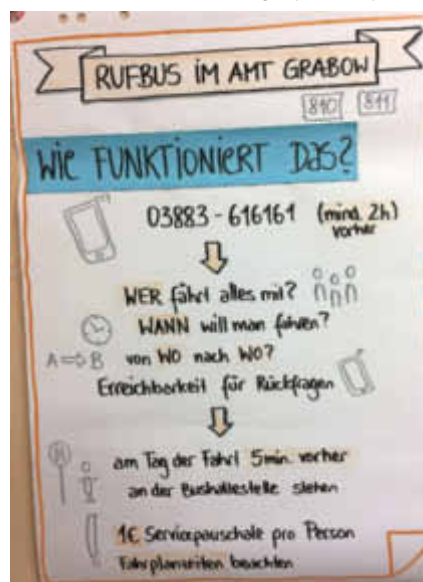 RUFBUS IM AMT GRABOW
840 841
WIE FUNKTIONIERT DAS?
03883-616161 (mind. 2h)
vorher
WER fährt alles mit?
WANN will man fahren?
A ⇒ B von WO nach WO?
Erreichbarkeit für Rückfragen
H
am Tag der Fahrt 5min. vorher
an der Bushaltestelle stehen
1€ Servicepauschale pro Person
Fahrplanzeiten beachten